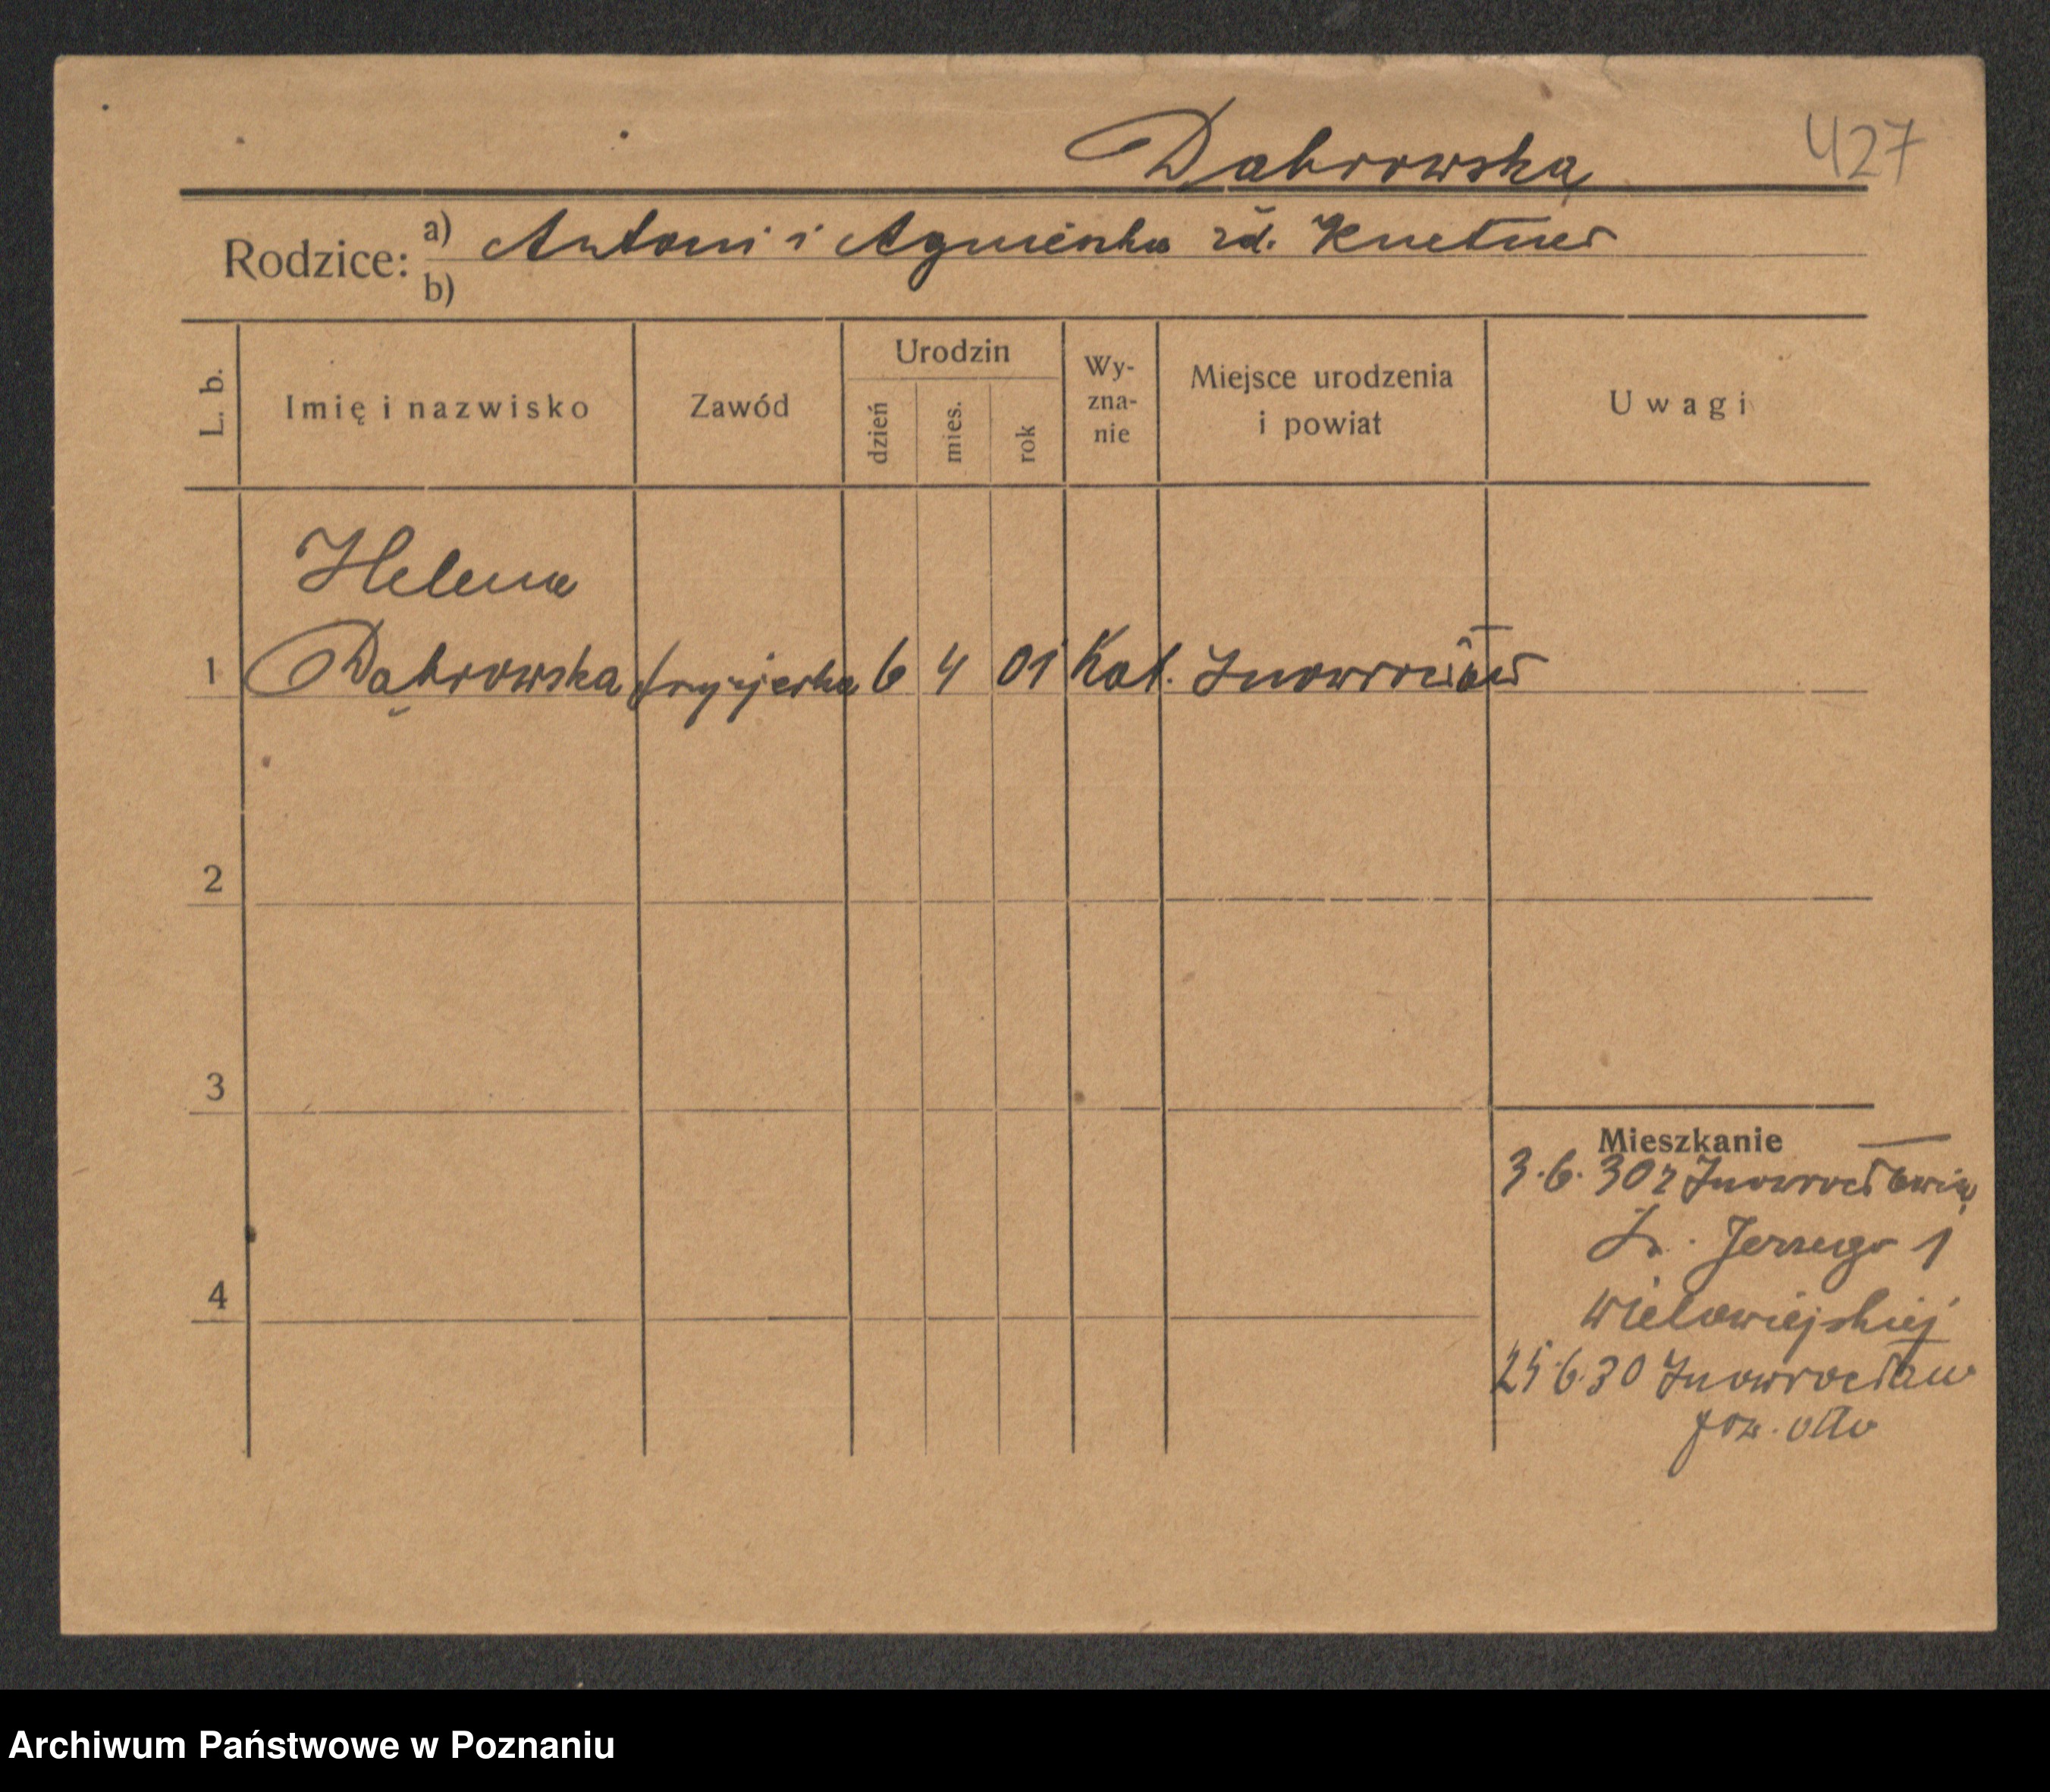 Dąbrowska
427
Rodzice: a) Antoni i Agnieszka zd. Knetner
b)
L. b. Imię i nazwisko Zawód Urodzin dzień mies. rok Wy-zna-nie Miejsce urodzenia i powiat Uwagi
Helena
1 Dąbrowska fryzjerka 6 4 01 Kat. Inowrocław
2
3
Mieszkanie
3.6.30 z Inowrocławia
Jerzego 1
4
Wielowiejskiej
25.6.30 Inowrocław
Archiwum Państwowe w Poznaniu